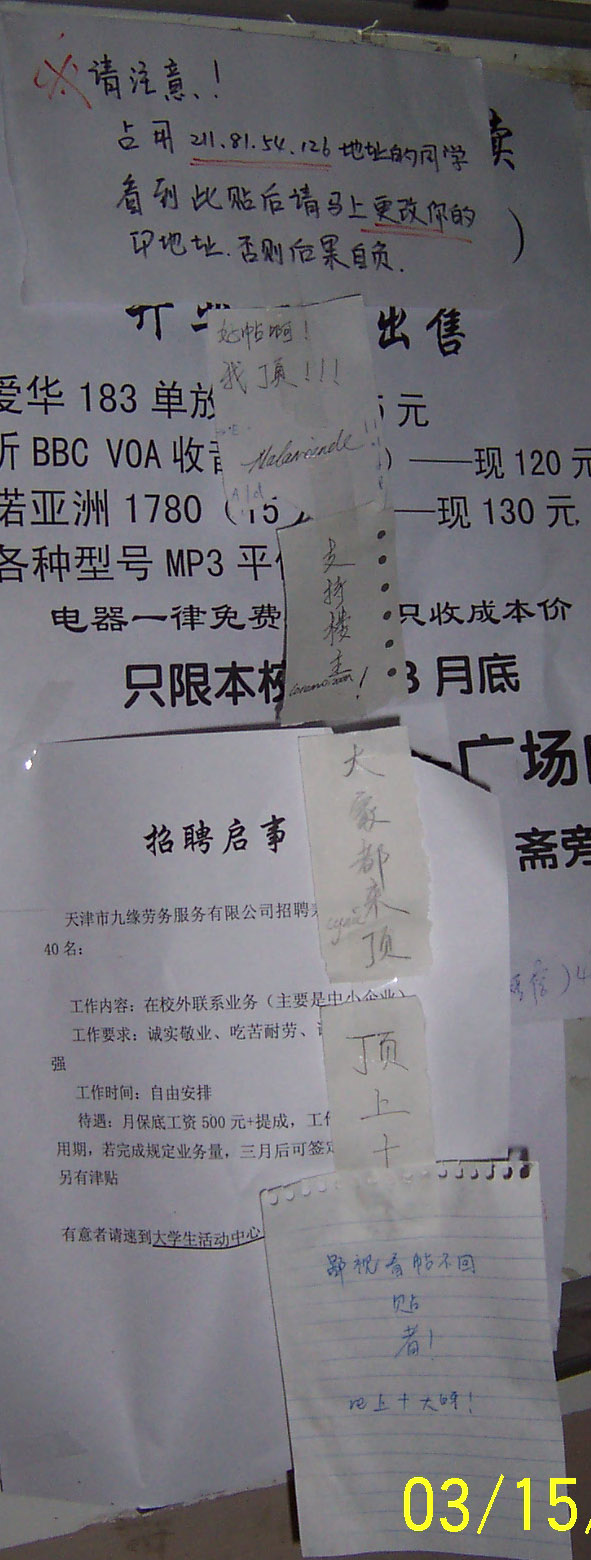 请注意!
占用 211.81.54.126 地址的同学
看到此贴后请马上更改你的
IP地址.否则后果自负.
卖
)
出售
好帖啊!
我顶!!!
爱华 183 单放
元
听 BBC VOA 收音
)——现 120 元
诺亚洲 1780 (15
——现 130 元
各种型号 MP3 平价
支持楼主!
电器一律免费
只收成本价
只限本校
3 月底
广场
斋旁
大家都来顶
招聘启事
天津市九缘劳务服务有限公司招聘
40 名:
工作内容: 在校外联系业务 (主要是中小企业)
工作要求: 诚实敬业、吃苦耐劳、
强
工作时间: 自由安排
待遇: 月保底工资 500 元+提成,
用期, 若完成规定业务量, 三月后可签定
另有津贴
有意者请速到大学生活动中心
顶上十
鄙视看帖不回
贴
者!
地上十大呀!
03/15/